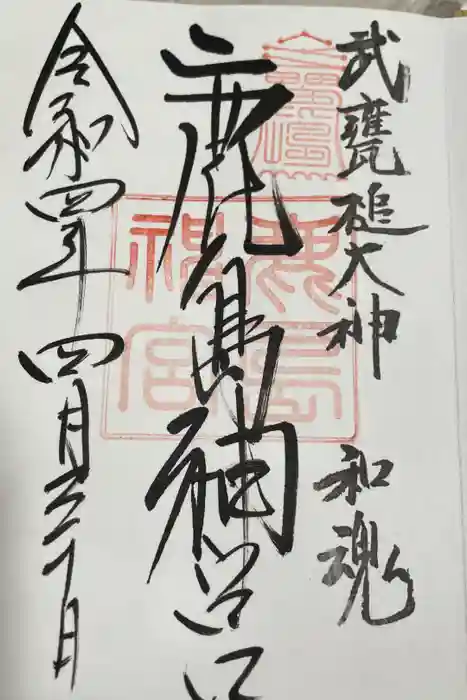 武甕槌大神 和魂
鹿島神宮
令和四年四月三十日
鹿島
神宮